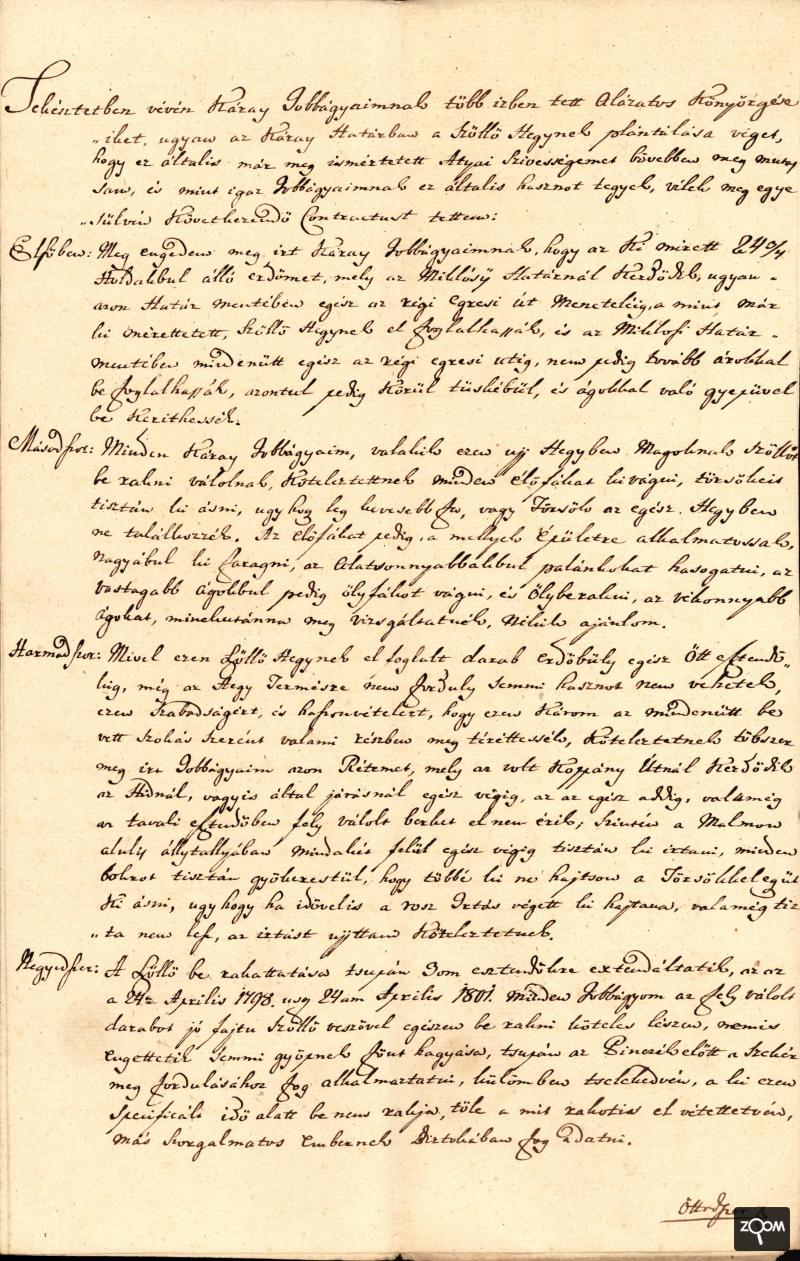 Tekéntetben vévén Káray Jobbágyaimnak több izben tett Alázatos Könyörgése
„iket, ugyan az Káray Határban a Szőllő Hegynek plántálása véget,
hogy ez általis már meg isméртetett Atyai Szivességemet bővebben meg mutas
sam, és mint igaz Jobbágyaimnak ez általis hasznot tegyek, vélek meg egye
„sülvén Következendő Contractust tettem:
Elsőben: Meg engedem meg irt Káray Jobbágyaimnak, hogy az Ki mérett 24
Holdakbul álló erdőmet, mely az Miklósy Határnál Kezdődik, ugyan
azon Határ mentében egész az régi Egresi út Meneteliig, a mint már
ki mérettetett, Szőllő Hegynek el foglalhassák, és az Miklósi Határ
mentében mindenütt egész az régi egresi utig, nem pedig tovább árokkal
be foglalhassák, azontul pedig Körül tüskébül, és ágokkal való gyepüvel
be Keríthessék.
Másodszor: Minden Káray Jobbágyaim, valakik ezen uj Hegyben Magoknak Szőllőt
be rakni válolnak, Köteleztettnek minden Élőfákat ki vágni, törsökeit
tisztán ki ásni, ugy hogy leg kevesebb fa, vagy Törsök az egész Hegyben
ne találtozzék. Az Élőfákat pedig, a mellyek Épületre alkalmatossak,
Nagyábul ki faragni, az Alatsonnyabbakbul palánkokat hasogatni, az
vastagabb ágokbul pedig ölyfákot vágni, és Ölyberakni, az vékonnyabb
Ágokat, minekutánna meg visgáltatnék, Nékik ajánlom.
Harmadszor: Mivel ezen Szőllő Hegynek el foglalt darab Erdőbűly egész Ött esztendő„
kig, még az Hegy Termésre nem forduly semmi hasznot nem vehetek,
ezen Szabadságért, és haszonvételért, hogy ezen Károm az mindenütt be
vett szokás szerént valami részben meg téríttessék, Köteleztetnek többször
meg irt Jobbágyaim azon Rétemet, mely az volt Koppány Útnál Kezdődik
az Hidnál, vagyis által járásnál egész végig, az az egész addig, valamég
az tavali esztendőben fely válolt berket el nem érik; Szintén a Malmon
aluly állytallyában mindakét felül egész végig tisztán ki irtani, minden
bokrot tisztán gyökerestül, hogy többé ki ne hajtson a Törsökkel egüt
Ki ásni, ugy hogy ha idővelis a rosz Irtás végett ki hajtana, valamég tiz
„ta nem lesz, az irtást ujjttam Köteleztetnek.
Negyedszer: A Szőllő be rakattatása tsupán 3om esztendőkre extendáltatik, az az
a 24a Április 1798. usq 24am Április 1801. Minden Jobbágyom az fely válolt
darabot jó fajtu Szőllő veszővel egészen be rakni köteles lészen, nemis
engettetik semmi gyöpnek fönt hagyása, tsupán az Pinczék előtt a Szekér
meg fordulásához fog alkalmaztatni, külömben tselekedvén, a ki ezen
specificált idő alatt be nem rakja, töle a mit rakotis el vétettetvén,
más szorgalmatos Embernek Birtokában fog adatni.
Öttödször
ZOOM